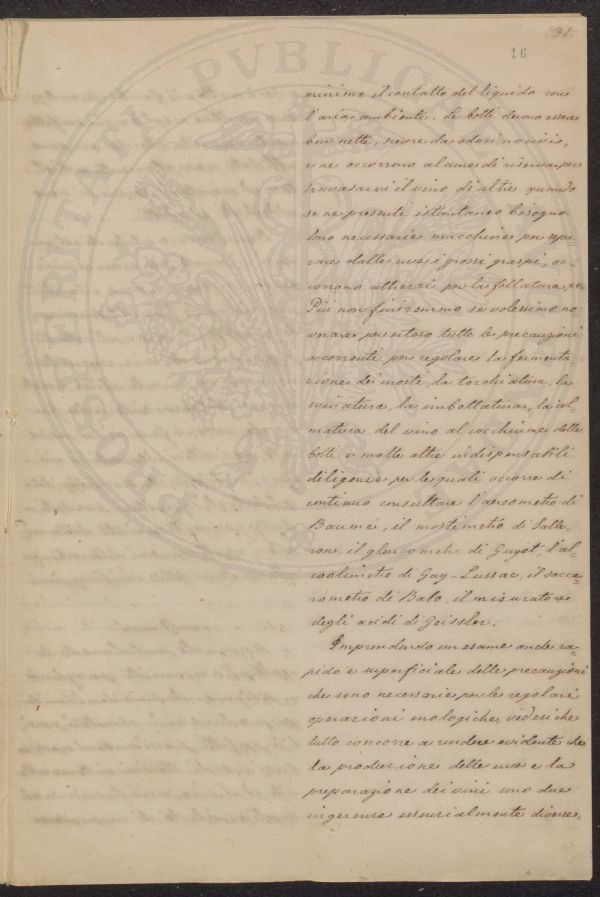 31
16
PVBLICAE
POSTERITATI
PROSPERITATI
minimo il contatto del liquido con
l'aria ambiente. Le botti devono essere
ben nette, scevre da odori nocivi,
e ne occorrono alcune di riserva per
travasarvi il vino di altre quando
se ne presenti istantaneo bisogno.
Sono necessarie macchine per sepa-
rare dalle uve i grossi graspi, oc-
corrono attrezzi per la follatura, ecc.
Più non finiremmo se volessimo no-
verare per esteso tutte le precauzioni
occorrenti per regolare la fermenta
zione dei mosti, la torchiatura, la
svinatura, la imbottatura, la col-
matura del vino al cocchiume delle
botti e molte altre indispensabili
diligenze per le quali occorre di
continuo consultare l'areometro di
Baumé, il mostimetro di Salle-
rons, il gleucometro di Guyot, l'al-
coolimetro di Gay-Lussac, il sacca-
rometro di Babo, il misuratore
degli acidi di Geissler.
Imprendendo un esame anche ra-
pido e superficiale delle precauzioni
che sono necessarie per le regolari
operazioni enologiche, vedesi che
tutto concorre a rendere evidente che
la produzione delle uve e la
preparazione dei vini sono due
ingerenze essenzialmente diverse,